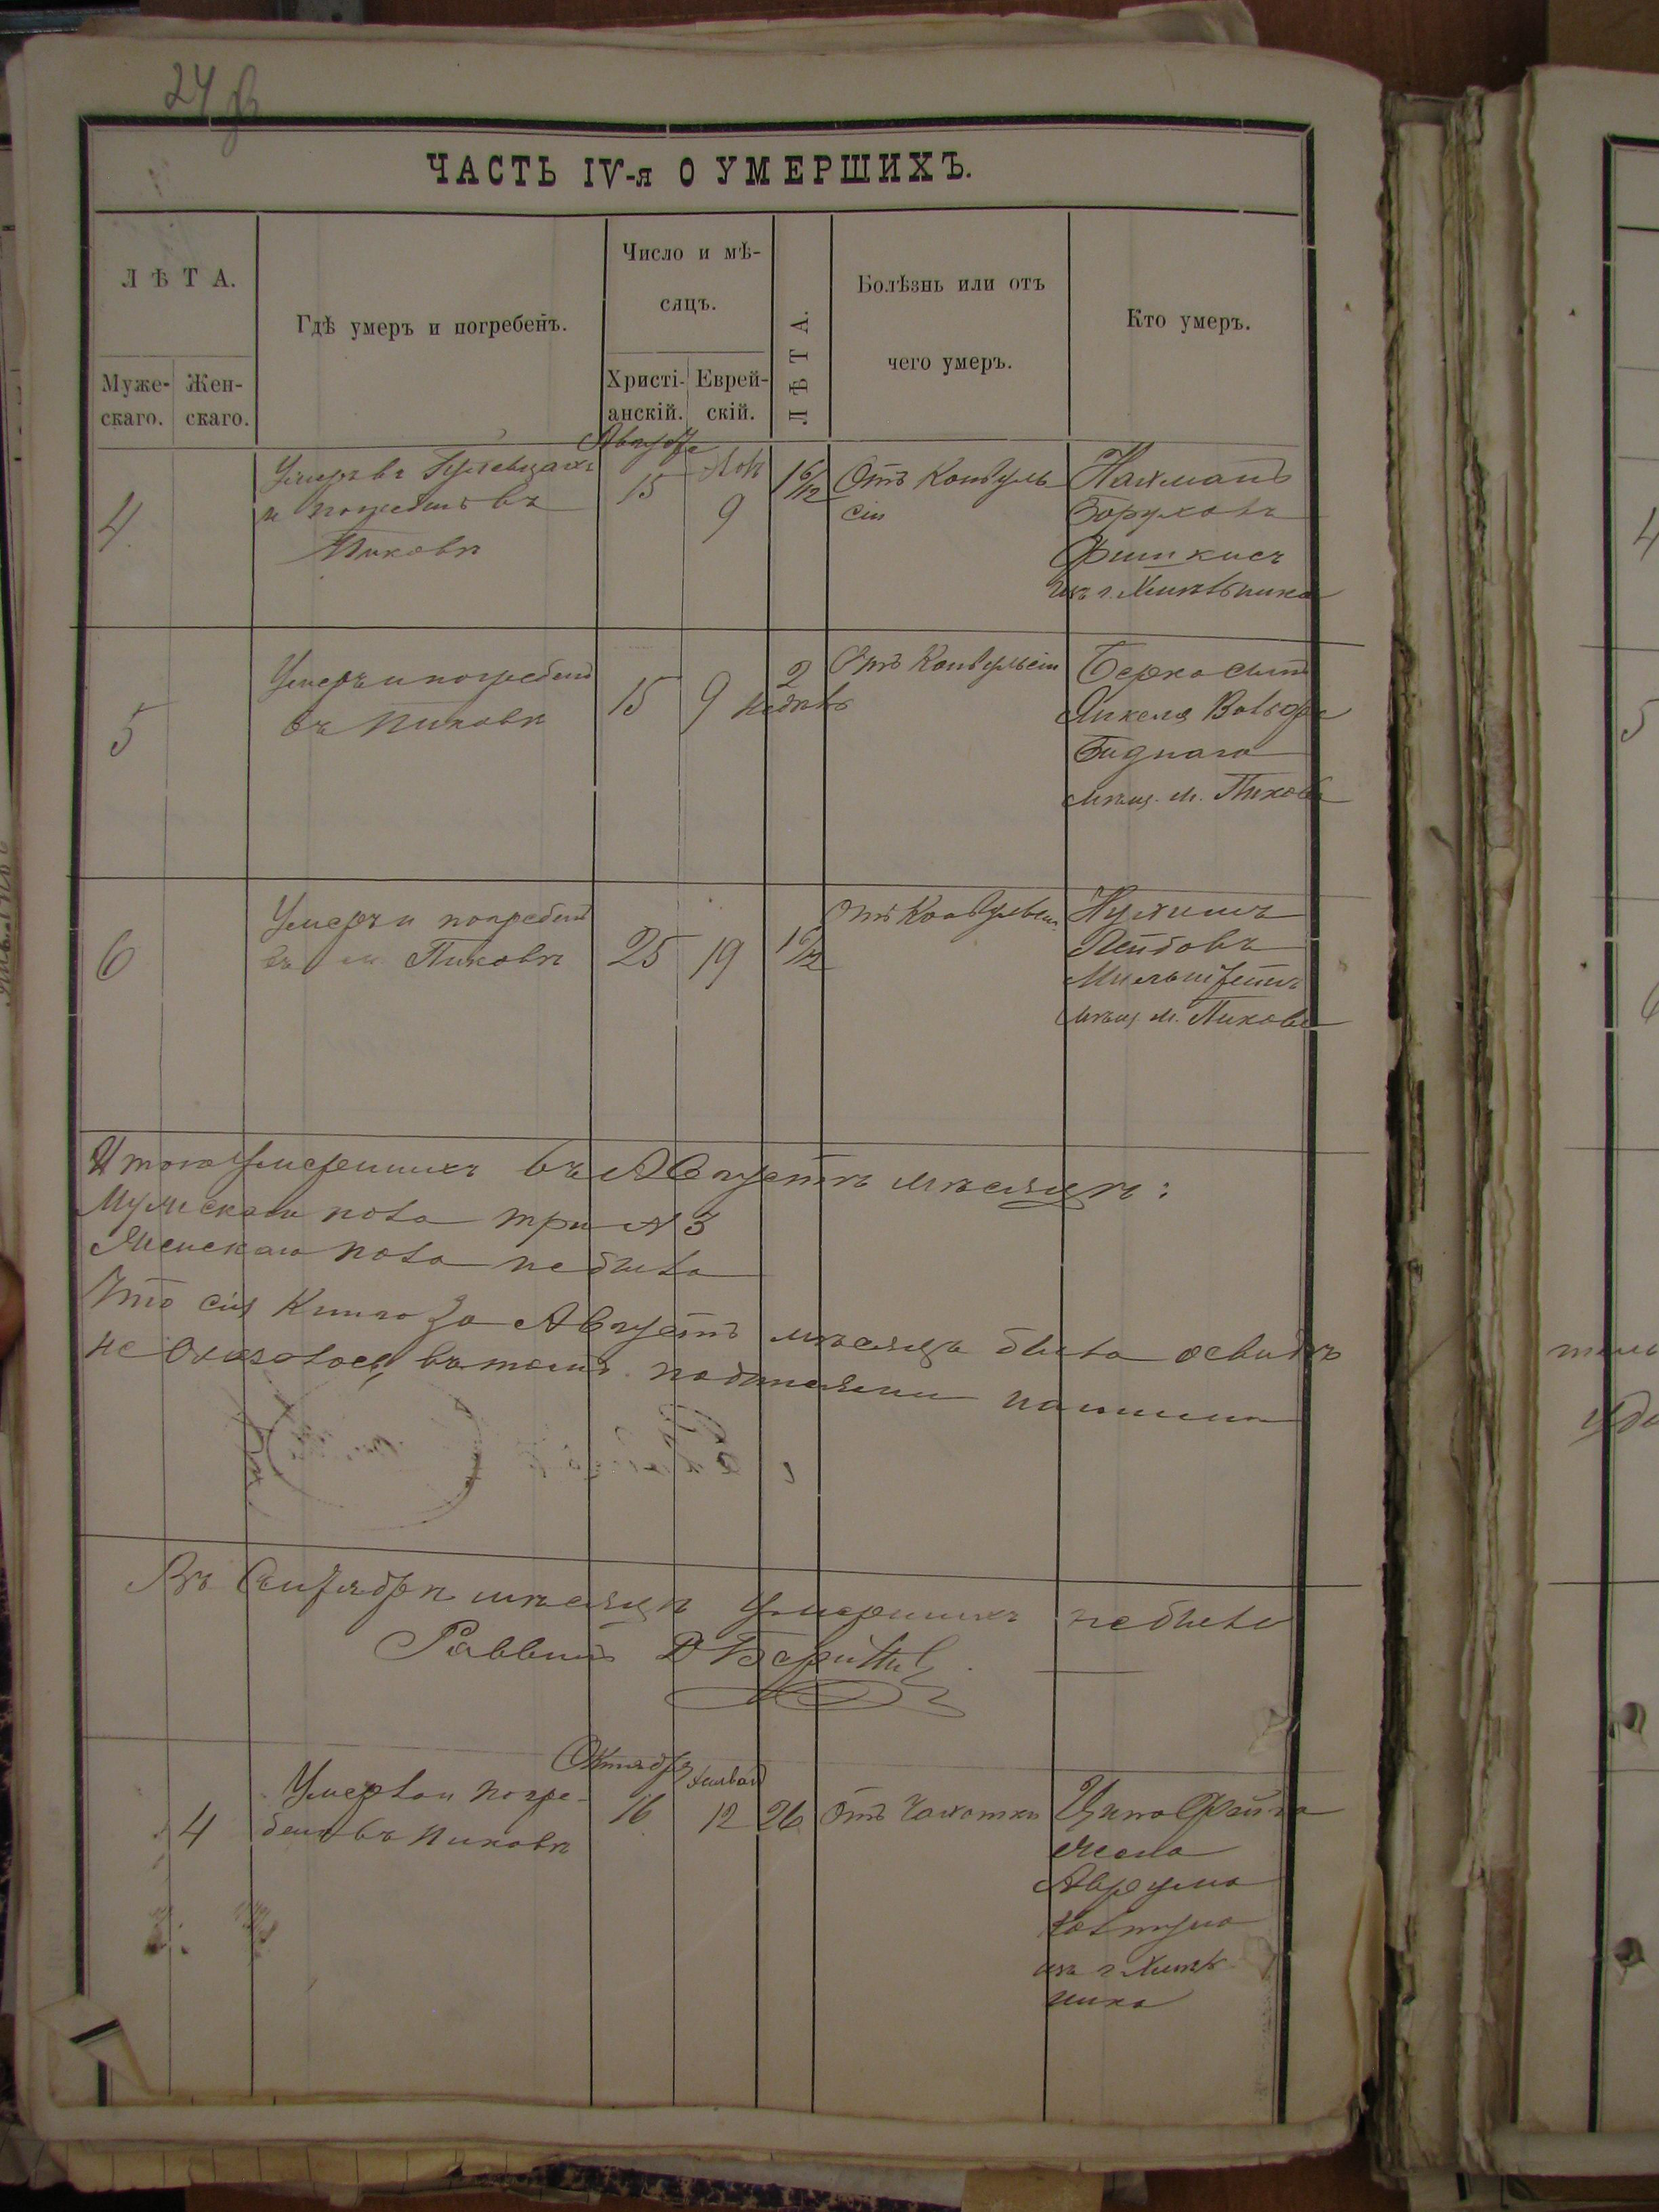 24
ЧАСТЬ IV-я О УМЕРШИХЪ.
ЛѢТА.
Муже-
скаго.
Жен-
скаго.
Гдѣ умеръ и погребенъ.
Число и мѣ-
сяцъ.
Христі-
анскій.
Еврей-
скій.
ЛѢТА.
Болѣзнь или отъ
чего умеръ.
Кто умеръ.
4
Умеръ въ
и погребенъ въ
Пиковѣ
Августа
15
9
Отъ Конвуль
сіи
Нахманъ
Боруховъ
Фишкисъ
изъ г. Хмѣльника
5
Умеръ и погребенъ
въ Пиковѣ
15
9
2
недѣль
Отъ Конвульсіи
Берко сынъ
Янкеля Вольфа
Биднаго
мѣщ. м. Пикова
6
Умеръ и погребенъ
въ м Пиковѣ
25
19
Отъ Конвульсіи
Нухимъ
Лейбовъ
Мильштейнъ
мѣщ. м. Пикова
Итого умершихъ въ Августѣ мѣсяцѣ:
Мужскаго пола три № 3
Женскаго пола небыло
Что сія Книга за Августъ мѣсяцъ была освидѣ
не оказалось въ томъ подписями нашими
Въ Сентябрѣ мѣсяцѣ умершихъ небыло
Раввинъ
4
Умерла и погре-
бена въ Пиковѣ
Октября
16
Хешванъ
12
26
Отъ Чахотки
Ципа Файга
жена
Аврума
Колтуна
изъ г Хмѣль
ника